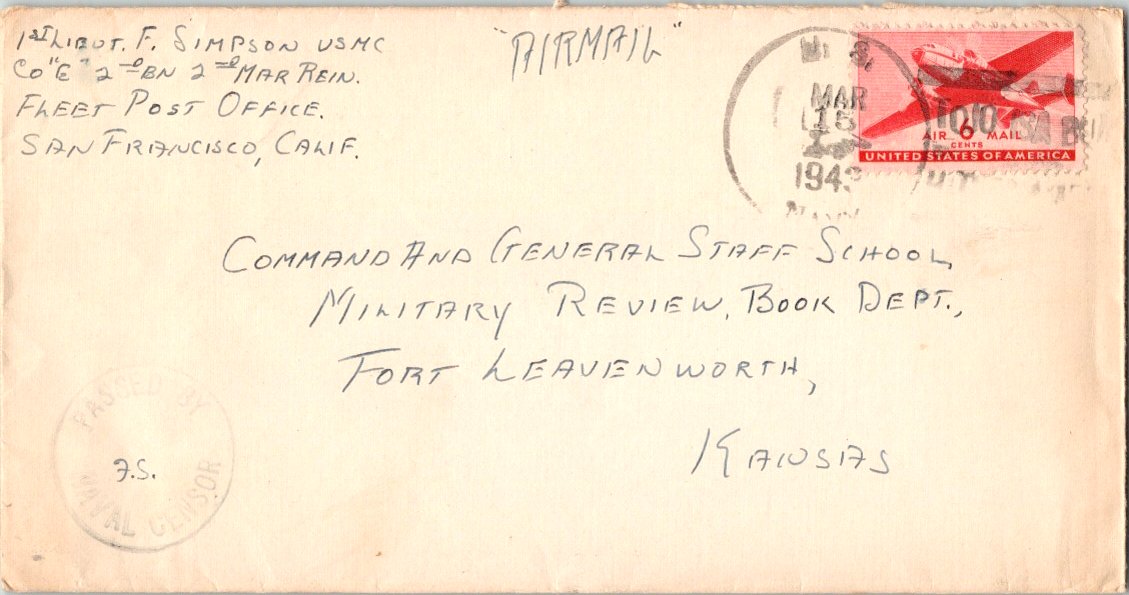 1st Lieut. F. Simpson USMC
Co "E" 2nd Bn 2nd Mar Rein.
Fleet Post Office.
San Francisco, Calif.
"AIRMAIL"
MAR
15
1943
AIR 6 MAIL
CENTS
UNITED STATES OF AMERICA
Command And General Staff School
Military Review, Book Dept.,
Fort Leavenworth,
Kansas
PASSED BY
F.S.
NAVAL CENSOR